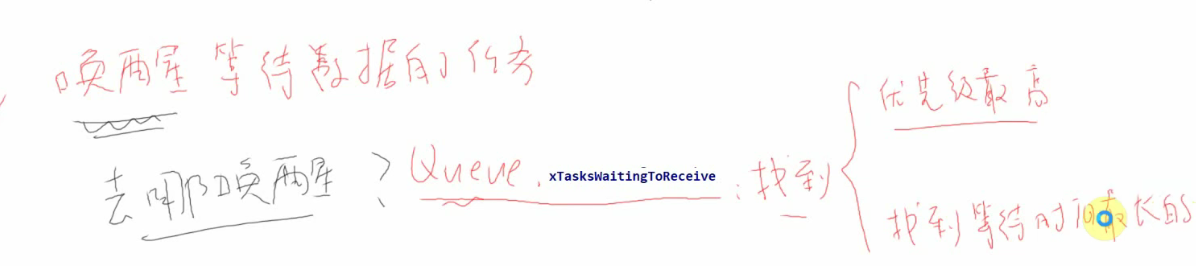 唤醒等待数据的任务
去哪唤醒? Queue. xTasksWaitingToReceive : 找到
优先级最高
找到等待时间最长的